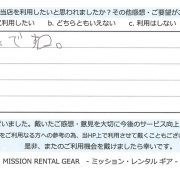 当店を利用したいと思われましたか？その他感想・ご要望が
用したい b. どちらともいえない c. 利用しない
でね。
いました。戴いたご感想・意見を大切に今後のサービス向上
をご利用なる方への参考の為、当HP上で利用させて戴くこともござ
是非、またのご利用機会を戴けましたら幸いです。
MISSION RENTAL GEAR - ミッション・レンタル ギア -